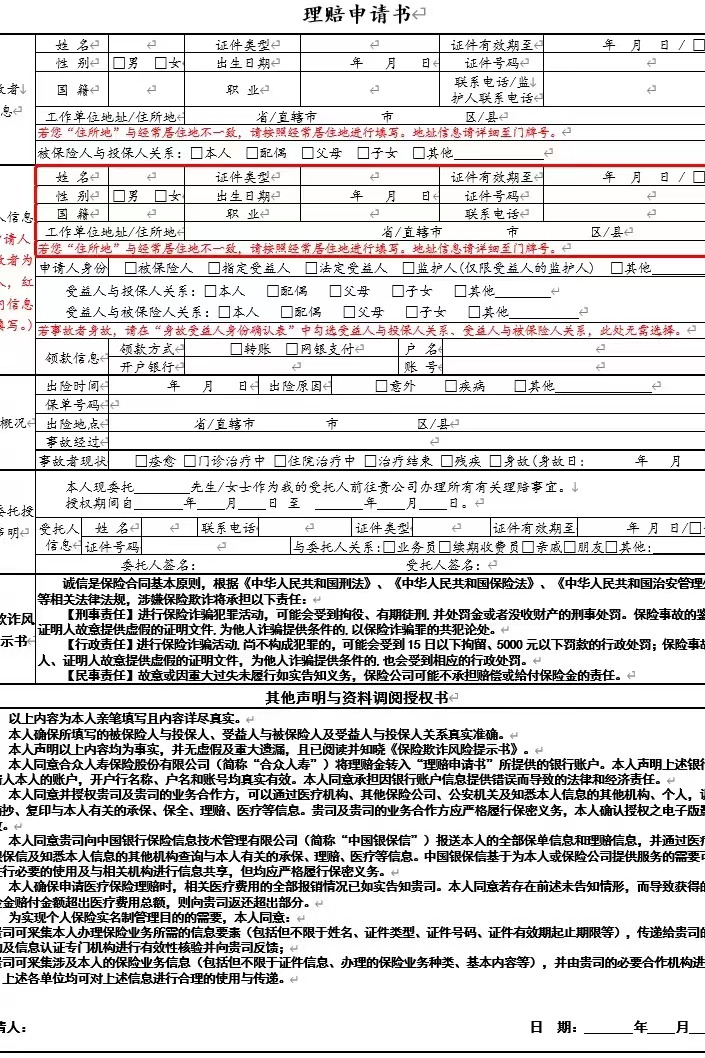 理赔申请书
姓 名 证件类型 证件有效期至 年 月 日 / □
性 别 □男 □女 出生日期 年 月 日 证件号码
故者 国 籍 职 业 联系电话/监
息 护人联系电话
工作单位地址/住所地 省/直辖市 市 区/县
若您“住所地”与经常居住地不一致，请按照经常居住地进行填写。地址信息请详细至门牌号。
被保险人与投保人关系：□本人 □配偶 □父母 □子女 □其他
姓 名 证件类型 证件有效期至 年 月 日 / □
性 别 □男 □女 出生日期 年 月 日 证件号码
人信息 国 籍 职 业 联系电话
请人 工作单位地址/住所地 省/直辖市 市 区/县
故者为 若您“住所地”与经常居住地不一致，请按照经常居住地进行填写。地址信息请详细至门牌号。
申请人身份 □被保险人 □指定受益人 □法定受益人 □监护人(仅限受益人的监护人) □其他
人，红 受益人与投保人关系：□本人 □配偶 □父母 □子女 □其他
的信息 受益人与被保险人关系：□本人 □配偶 □父母 □子女 □其他
填写。） 若事故者身故，请在“身故受益人身份确认表”中勾选受益人与投保人关系、受益人与被保险人关系，此处无需选择。
领款信息 领款方式 □转账 □网银支付 户 名
开户银行 账 号
出险时间 年 月 日 出险原因 □意外 □疾病 □其他
保单号码
概况 出险地点 省/直辖市 市 区/县
事故经过
事故者现状 □痊愈 □门诊治疗中 □住院治疗中 □治疗结束 □残疾 □身故(身故日： 年 月
本人现委托 先生/女士作为我的受托人前往贵公司办理所有有关理赔事宜。
委托授 授权期间自 年 月 日 至 年 月 日。
声明 受托人 姓 名 联系电话 证件类型 证件有效期至 年 月 日/□
信息 证件号码 与委托人关系:□业务员□续期收费员□亲戚□朋友□其他:
委托人签名： 受托人签名：
诚信是保险合同基本原则，根据《中华人民共和国刑法》、《中华人民共和国保险法》、《中华人民共和国治安管理处
等相关法律法规，涉嫌保险欺诈将承担以下责任：
欺诈风 【刑事责任】进行保险诈骗犯罪活动，可能会受到拘役、有期徒刑,并处罚金或者没收财产的刑事处罚。保险事故的鉴
示书 证明人故意提供虚假的证明文件,为他人诈骗提供条件的,以保险诈骗罪的共犯论处。
【行政责任】进行保险诈骗活动,尚不构成犯罪的，可能会受到15日以下拘留、5000元以下罚款的行政处罚；保险事故
人、证明人故意提供虚假的证明文件，为他人诈骗提供条件的,也会受到相应的行政处罚。
【民事责任】故意或因重大过失未履行如实告知义务，保险公司可能不承担赔偿或给付保险金的责任。
其他声明与资料调阅授权书
以上内容为本人亲笔填写且内容详尽真实。
本人确保所填写的被保险人与投保人、受益人与被保险人及受益人与投保人关系真实准确。
本人声明以上内容均为事实，并无虚假及重大遗漏，且已阅读并知晓《保险欺诈风险提示书》。
本人同意合众人寿保险股份有限公司（简称“合众人寿”）将理赔金转入“理赔申请书”所提供的银行账户。本人声明上述银行
人本人的账户，开户行名称、户名和账号均真实有效。本人同意承担因银行账户信息提供错误而导致的法律和经济责任。
本人同意并授权贵司及贵司的业务合作方，可以通过医疗机构、其他保险公司、公安机关及知悉本人信息的其他机构、个人，
抄、复印与本人有关的承保、保全、理赔、医疗等信息。贵司及贵司的业务合作方应严格履行保密义务，本人确认授权之电子版
。
本人同意贵司向中国银行保险信息技术管理有限公司（简称“中国银保信”）报送本人的全部保单信息和理赔信息，并通过医疗
银保信及知悉本人信息的其他机构查询与本人有关的承保、理赔、医疗等信息。中国银保信基于为本人或保险公司提供服务的需要可
进行必要的使用及与相关机构进行信息共享，但均应严格履行保密义务。
本人确认申请医疗保险理赔时，相关医疗费用的全部报销情况已如实告知贵司。本人同意若存在前述未告知情形，而导致获得的
金赔付金额超出医疗费用总额，则向贵司返还超出部分。
为实现个人保险实名制管理目的的需要，本人同意：
贵司可采集本人办理保险业务所需的信息要素（包括但不限于姓名、证件类型、证件号码、证件有效期起止期限等），传递给贵司的
及信息认证专门机构进行有效性核验并向贵司反馈；
贵司可采集涉及本人的保险业务信息（包括但不限于证件信息、办理的保险业务种类、基本内容等），并由贵司的必要合作机构进
上述各单位均可对上述信息进行合理的使用与传递。
请人： 日 期： 年 月